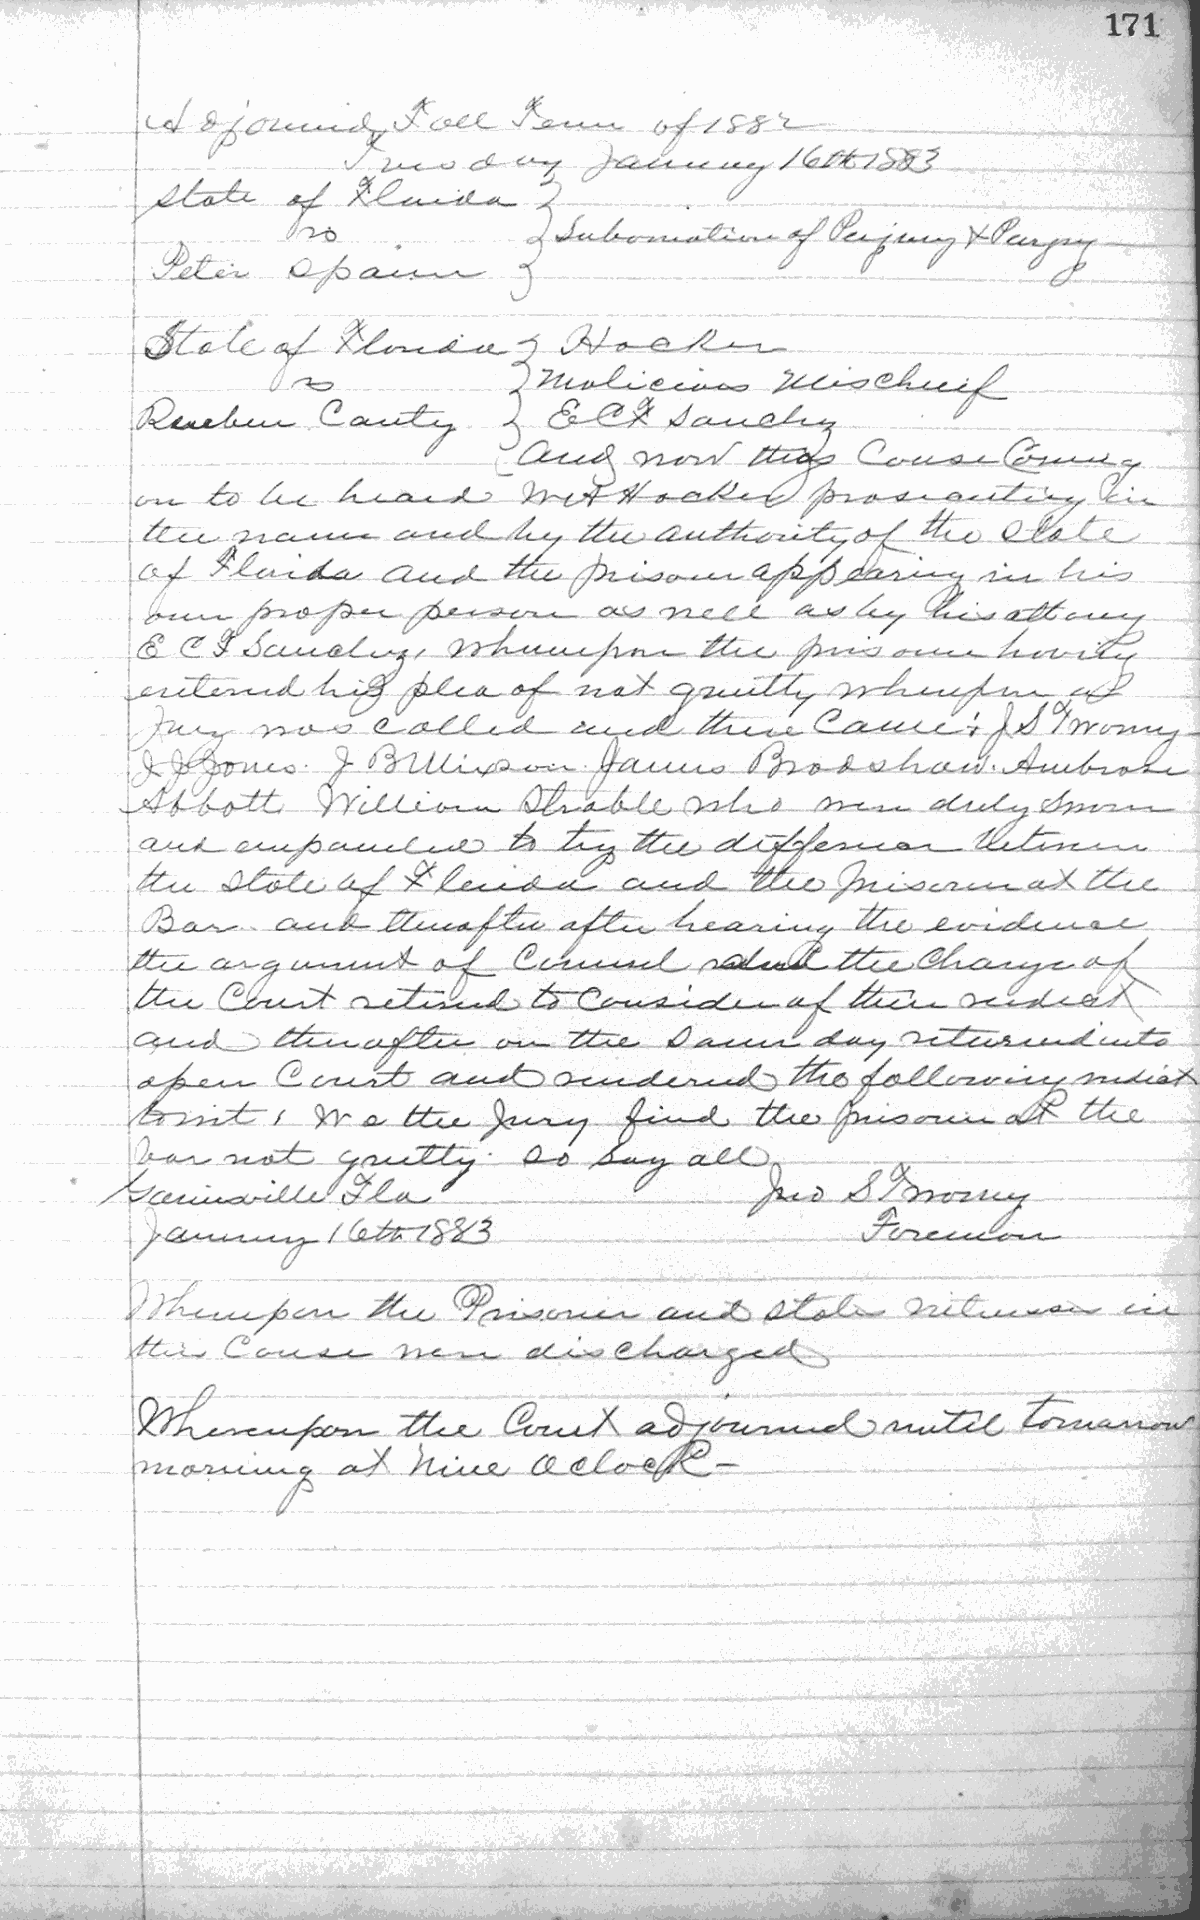 171
Adjourned Fall Term of 1882
Tuesday January 16th 1883
State of Florida
vs
Subornation of Perjury & Perjury
Peter Spann
State of Florida Hocker
vs Malicious Mischief
Reuben Canty E C F Sanchez
And now this Cause Coming
on to be heard W A Hocker prosecuting in
the name and by the authority of the State
of Florida and the prisoner appearing in his
own proper person as well as by his attorney
E C F Sanchez, Whereupon the prisoner having
entered his plea of not guilty whereupon a
Jury was called and there Came: J S Twomy
J J Jones. J B Mixson. James Bradshaw. Ambrose
Abbott William Strable who were duly Sworn
and empaneled to try the difference between
the State of Florida and the prisoner at the
Bar. and thereafter after hearing the evidence
the argument of Counsel and the Charge of
the Court retired to Consider of their verdict
and thereafter on the Same day returned into
open Court and rendered the following verdict
towit, We the Jury find the prisoner at the
bar not guilty. So Say all
Gainesville Fla Jno S Twomy
January 16th 1883 Foreman
Whereupon the Prisoner and State witnesses in
this Cause were discharged
Whereupon the Court adjourned until tomarrow
morning at Nine Oclock -